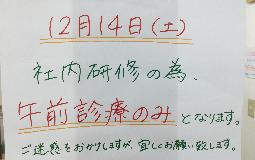 12月14日(土)
社内研修の為、
午前診療のみとなります。
ご迷惑をおかけしますが、宜しくお願い致します。